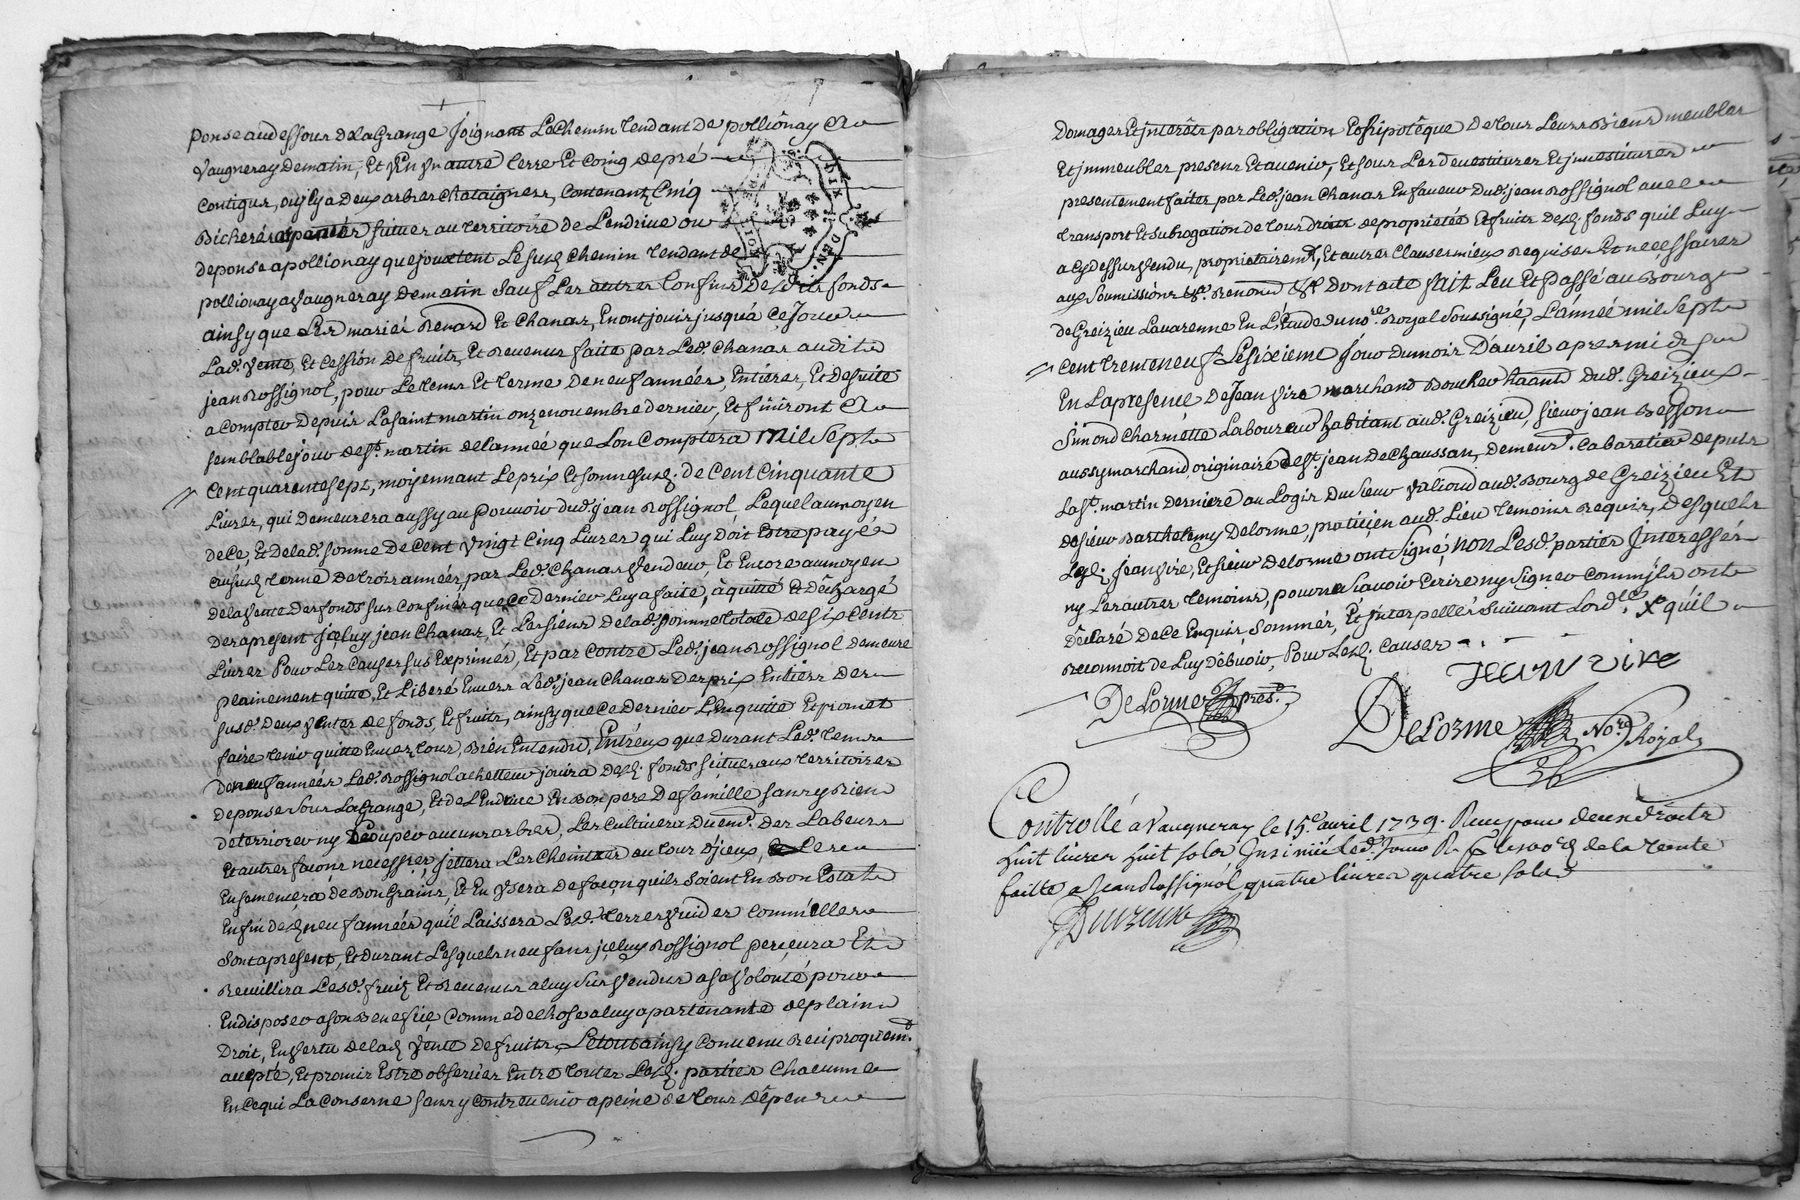 ponse audessous de la Grange Joignant Le Chemin tendant de pollionay a
Vaugneray de matin, Et En Un autre terre Et Coing de pré
Contigus, ou il y a deux arbres Chataigners, Contenant Cinq
Bicherées scituer au territoire de Lendrive ou
de ponse a pollionay que jouxtent Le susd. Chemin tendant de
pollionay a Vaugneray de matin sauf Les autres Confins desdits fonds
ainsy que Les mariés Renard Et Chanas, En ont jouir jusqu'à Ce Jour
Lad. Vente, Et Cession de fruits, Et Revenus faite par Led. Chanas audit
jean Rossignol, pour Le tems Et terme de neuf années, Entieres, Et de suite
a Compter depuis La saint martin onze novembre dernier, Et finiront a
semblable jour de st. martin de l'année que L'on Comptera mil sept
Cent quarente sept, moyennant Le prix Et somme susd. de Cent Cinquante
Livres, qui demeurera aussy au pouvoir dud. jean Rossignol Lequel au moyen
de Ce, Et de lad. somme de Cent Vingt Cinq Livres qui Luy doit Estre payé
au susd. terme de trois années, par Led. Chanas Vendeur, Et Encore au moyen
de la Vente des fonds sus Confinés que Ce dernier Luy a faite, a quitté Et déchargé
des a present jceluy jean Chanas, Et Les siens de lad. somme totale de six Cents
Livres Pour Les Causes sus Exprimés, Et par Contre Led. jean Rossignol demeure
plainement quitte, Et Liberé Envers Led. jean Chanas des prix Entiers des
susd. deux Ventes de fonds, Et fruits, ainsy que Ce dernier L'en quitte Et promet
faire tenir quitte Envers tous, Bien Entendu, Entr'eux que durant Led. tems
de neuf années Led. Rossignol achetteur jouira desd. fonds scitues aux territoires
de ponse sous La Grange, Et de Lendrive En Bon pere de famille sans y Rien
deteriorer ny Couper aucuns arbres, Les Cultivera duem.t des Labeurs
Et autres façons necessres, jettera Les Cheintres au tour d'jceux, Les
Ensemencera de Bon Grains, Et En Usera de façon qu'ils soient En Bon Estat
En fin desd. neuf années qu'il Laissera Lesd. terres Vuides Comm'elles
sont a present, Et durant Lesquels neuf ans jceluy Rossignol percevra Et
Reuillira Lesd. fruits Et Revenus a luy sus Vendus a sa Volonté pour
En disposer a son Benefice Comme de Chose a luy apartenante de plain
droit, En Vertu de lad. Vente de fruits, Le tout ainsy Convenu Reciproquem.t
accepté, Et promis Estre observés Entre toutes Lesd. parties Chacunne
En Ce qui La Conserne sans y Contrevenir a peine de tous dépens
Domages Et jnterêts par obligation Et hipotêque de tous Leurs Biens meubles
Et jmmeubles presens Et avenir, Et sous Les devestitures Et jnvestitures
presentement faites par Led. jean Chanas En faveur dud. jean Rossignol avec
transport Et subrogation de tous droits de proprieté Et fruits desd. fonds qu'il Luy
a Cy dessus Vendu, proprietairem.t, Et autres Clauses mieux Requises Et necessaires
aux soumissions &c. Renond. &c. dont acte fait Leu Et Passé au Bourg
de Greizieu Lavarenne En L'Etude du no.re Royal soussigné, L'année mil sept
Cent trente neuf Le sixieme jour du mois d'avril apres midi
En La presence de Jean Viré marchand Boucher habitant dud. Greizieux
Simond Charmette Laboureur habitant aud. Greizieu, sieur jean Besson
aussy marchand originaire de St. jean de Chaussan, demeur.t Cabaretier depuis
La St. martin derniere au Logis du sieur Valioud aud. Bourg de Greizieu Et
de sieur Barthelemy Delorme, praticien aud. Lieu temoins Requis, desquels
Led. jean Viré, Et sieur Delorme ont signé, non Lesd. parties Interessées
ny Les autres temoins, pour ne sçavoir Ecrire ny signer Comm'jls ont
déclaré de Ce Enquis sommés, Et jnterpellés suivant L'ord.ce X qu'il
Reconnoit de Luy débvoir, Pour Lesd. Causes
Jean Vire
Delorme pres.t
Delorme No.re Royal
Controllé a Vaugneray le 15.e avril 1739. Reçu pour deux droits
huit livres huit sols, Insinué led. jour Reçu de la vente
faitte a Jean Rossignol quatre livres quatre sols